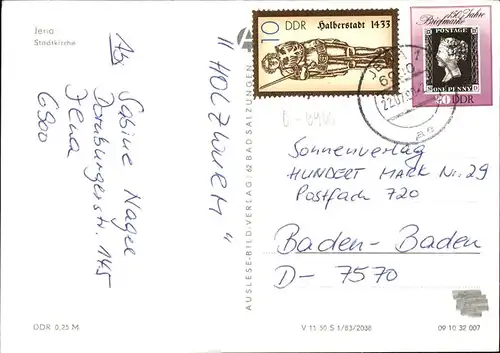 Jena
Stadtkirche
Sabine Nagel
Dornburgerstr. 145
Jena
6900
"HOLZWURM"
AUSLESE-BILD-VERLAG 62 BAD SALZUNGEN
10
DDR
Halberstadt 1433
150 Jahre
Briefmarke
POSTAGE
ONE PENNY
20 DDR
Sonnenverlag
HUNDERT MARK Nr. 29
Postfach 720
Baden-Baden
D-7570
DDR 0,25 M
V 11 50 S 1/83/2038
09 10 32 007